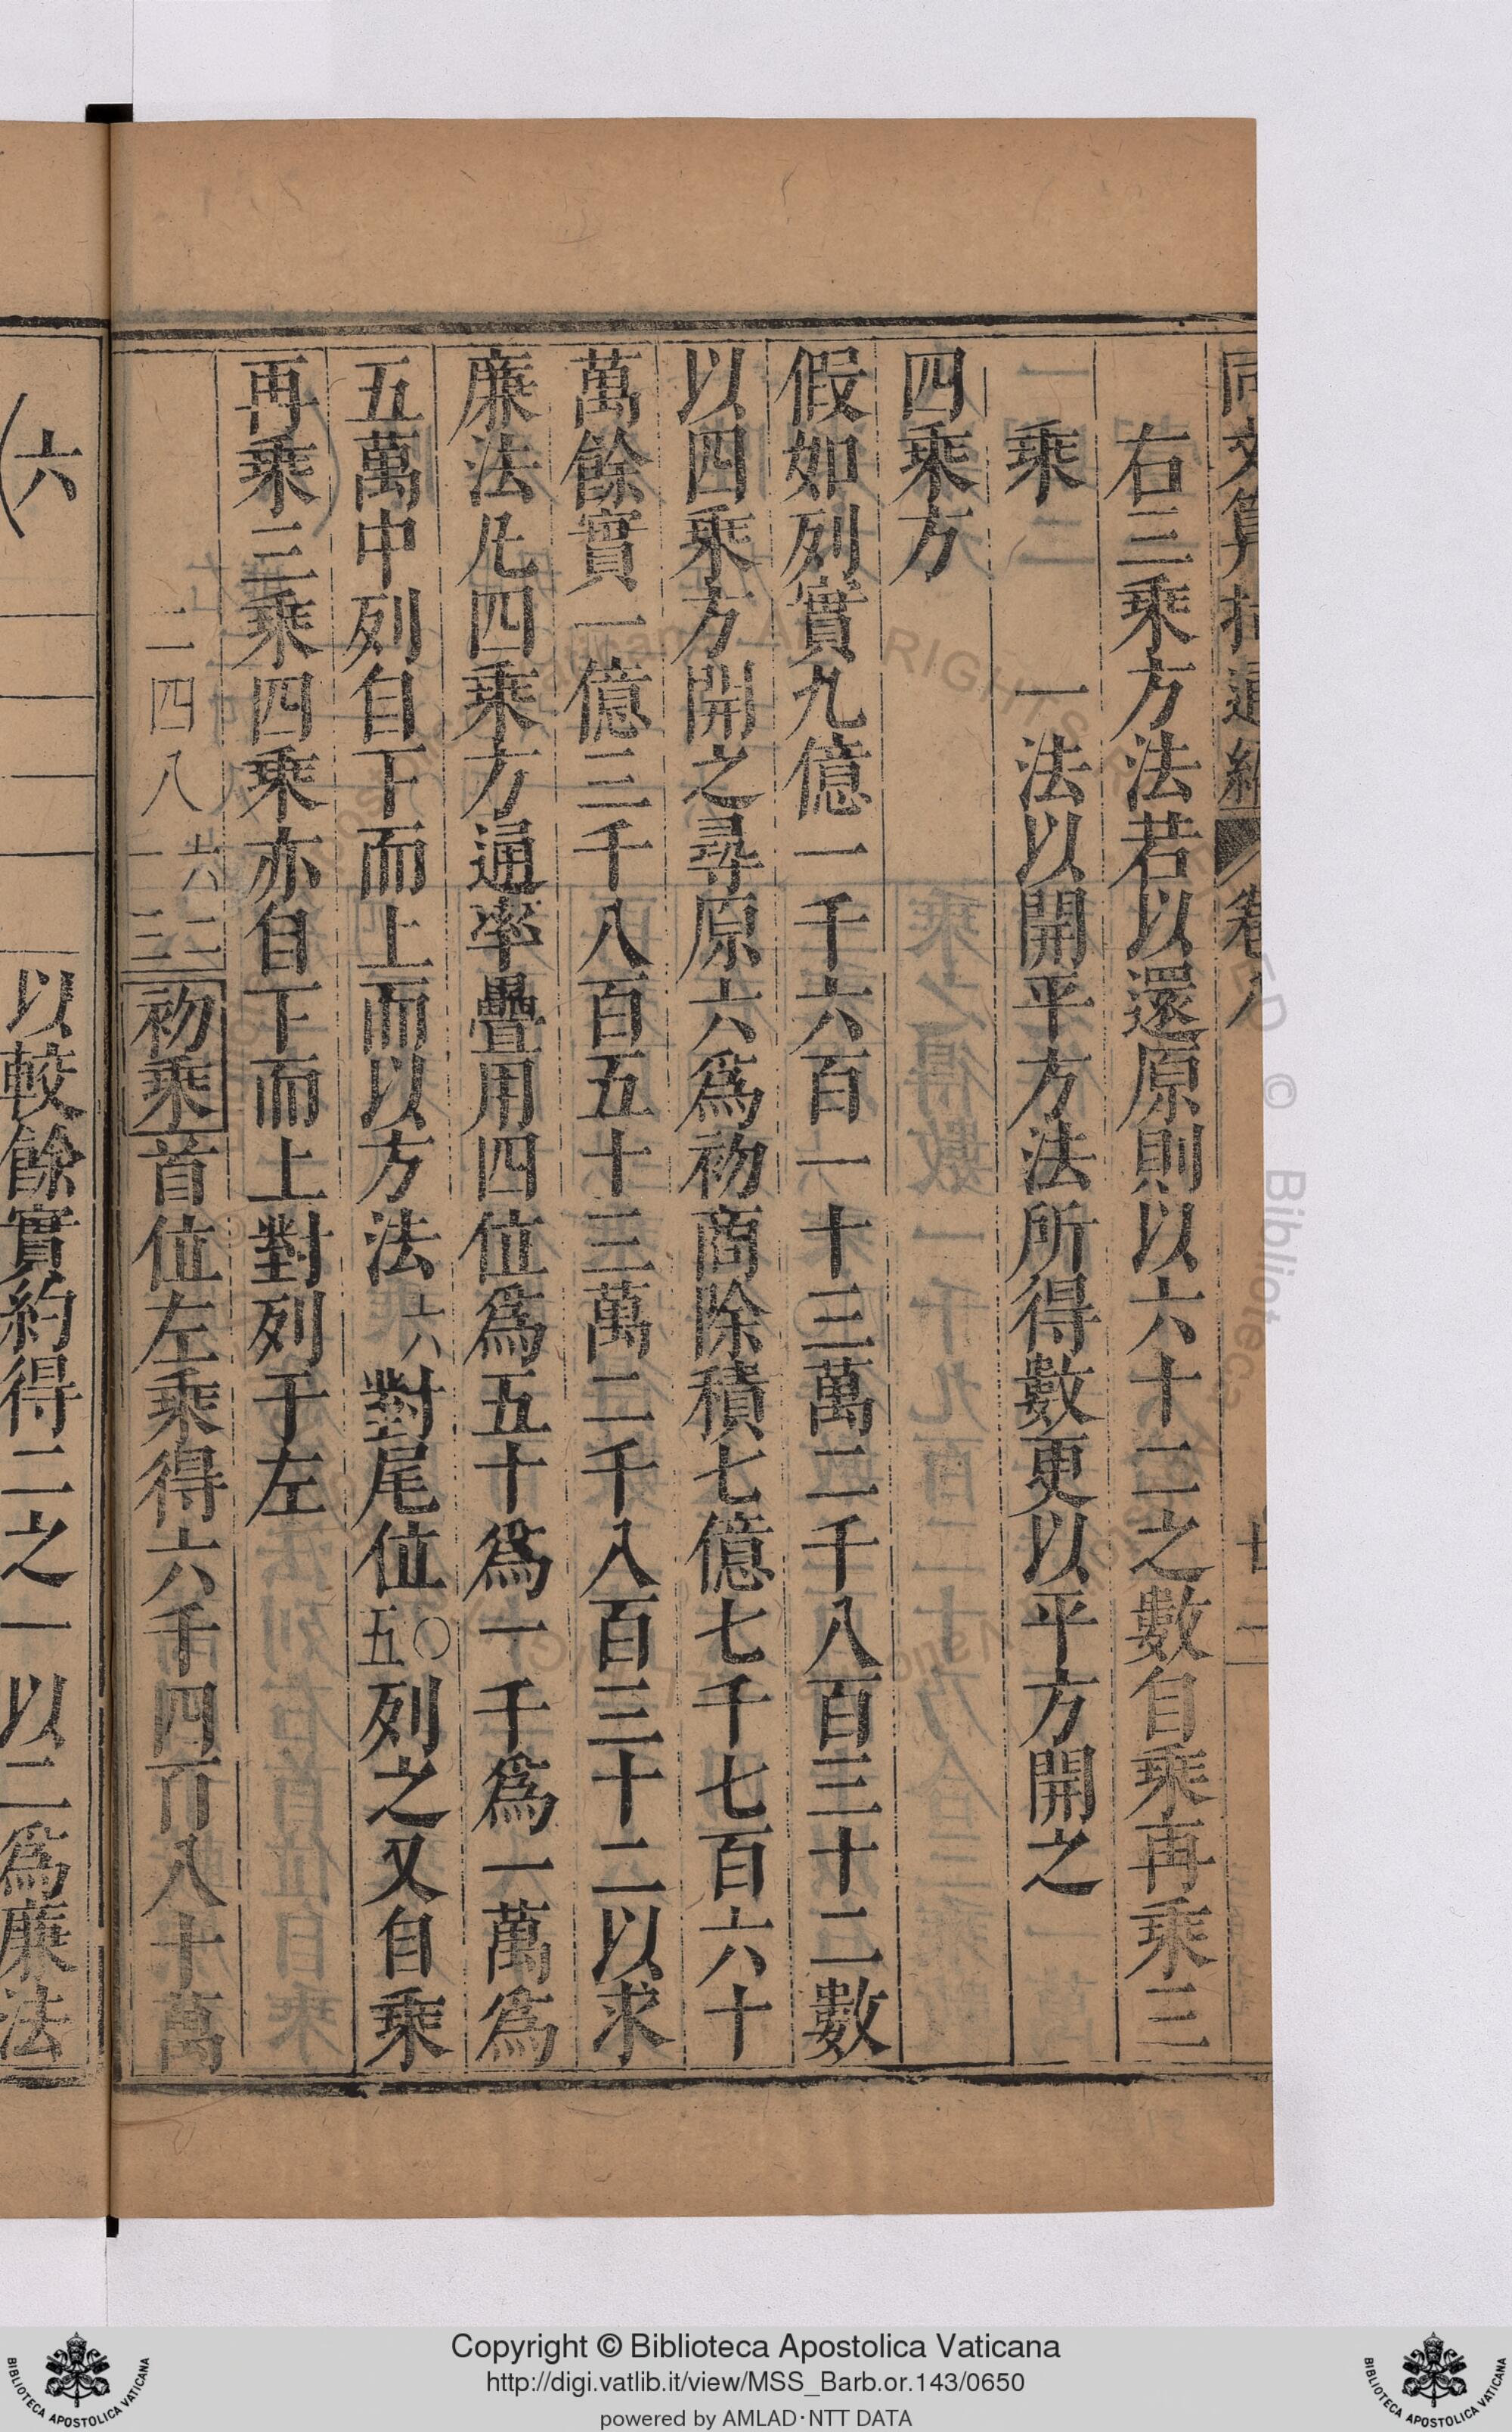 同文算指通編 卷八 廿二
右三乘方法若以還原則以六十二之數自乘再乘三
乘 一法以開平方法所得數更以平方開之
四乘方
假如列實九億一千六百一十三萬二千八百三十二數
以四乘方開之尋原六爲初商除積七億七千七百六十
萬餘實一億三千八百五十三萬二千八百三十二以求
廉法凡四乘方通率疊用四位爲五十爲一千爲一萬爲
五萬中列自下而上而以方法六對尾位五〇列之又自乘
再乘三乘四乘亦自下而上對列于左
二四八一六三二初乘首位左乘得六千四百八十萬
六
以較餘實約得二之一以二爲廉法
Copyright © Biblioteca Apostolica Vaticana
http://digi.vatlib.it/view/MSS_Barb.or.143/0650
powered by AMLAD·NTT DATA
BIBLIOTECA APOSTOLICA VATICANA
BIBLIOTECA APOSTOLICA VATICANA